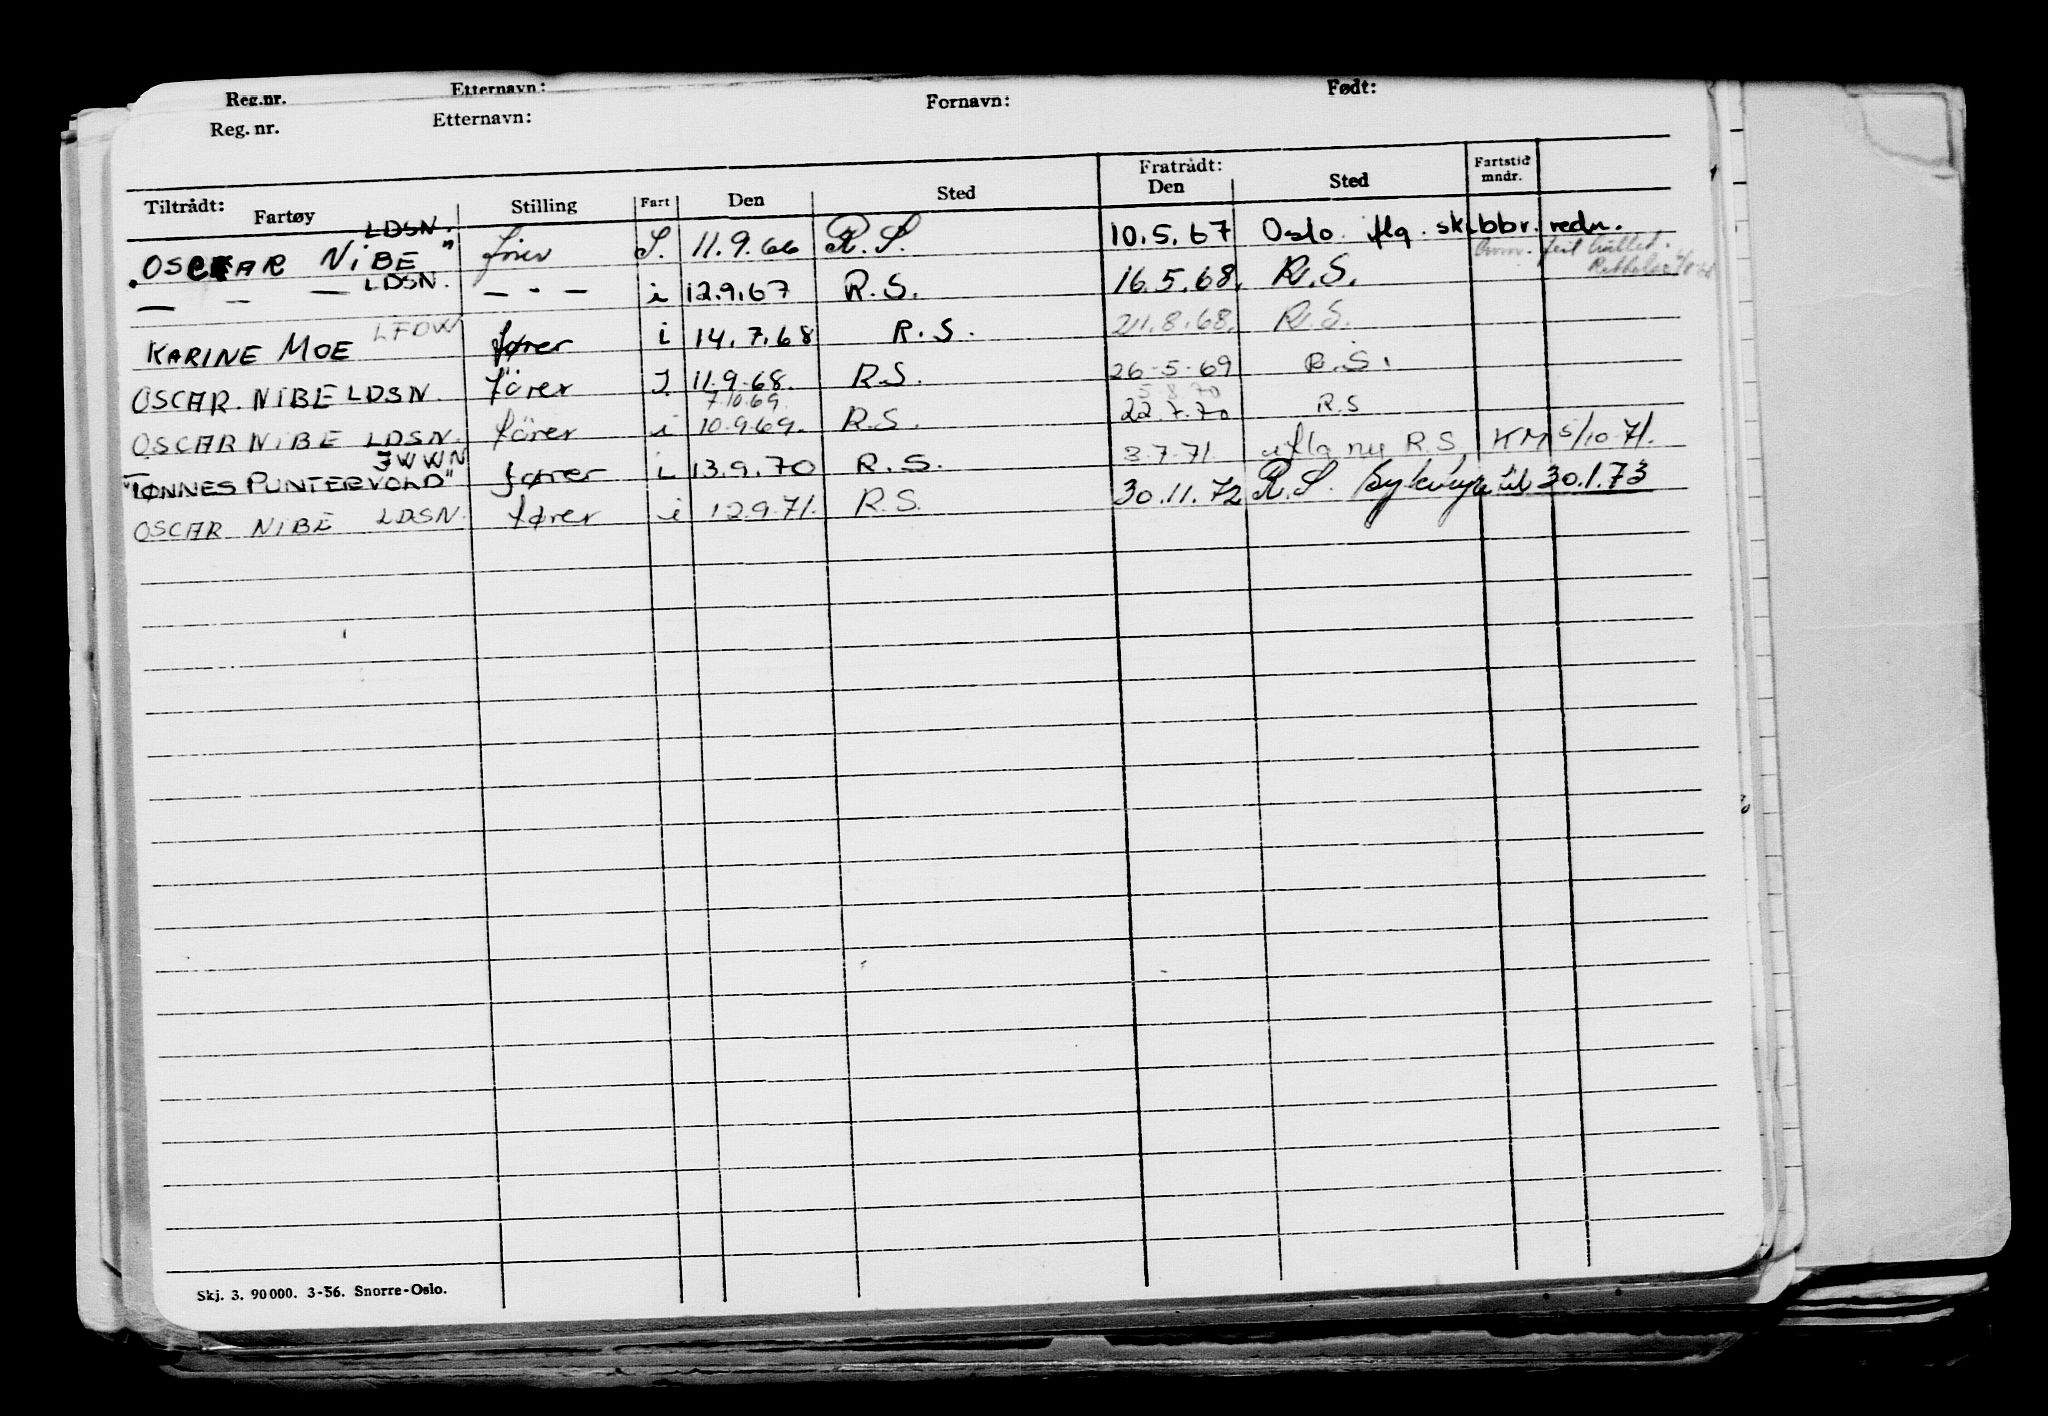 Reg.nr. Etternavn: Fornavn: Født:
Reg. nr. Etternavn:
Tiltrådt: Fratrådt: Fartstid
Fartøy Stilling Fart Den Sted Den Sted mndr.
"OSCAR NIBE" LDSN. fører S. 11.9.66 R.S. 10.5.67 Oslo iflg. skibbr. redn.
— — — LDSN. — - — i 12.9.67 R.S. 16.5.68. R.S.
KARINE MOE LFDW fører i 14.7.68 R.S. 24.8.68. R.S.
OSCAR NIBE LDSN. fører I 11.9.68. R.S. 26-5-69 R.S.
7.10.69. 5.8.70
OSCAR NIBE LDSN. fører i 10.9.69. R.S. 22.7.70 R.S
"TØNNES PUNTERVOLD" JWWN fører i 13.9.70 R.S. 3.7.71 iflg ny R.S. KM 5/10-71.
OSCAR NIBE LDSN. fører i 12.9.71. R.S. 30.11.72 R.S. til 30.1.73
Skj. 3. 90000. 3-56. Snorre-Oslo.